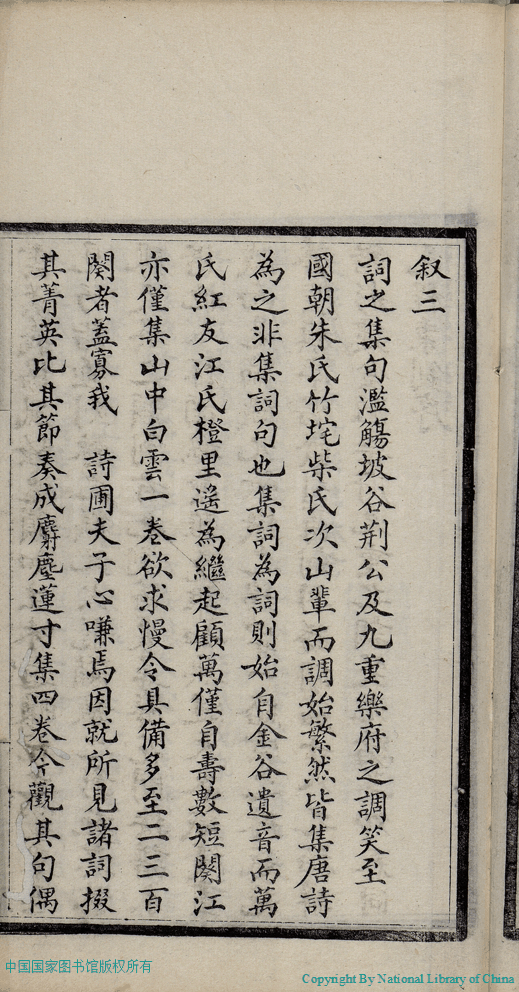 叙三
詞之集句濫觴坡谷荆公及九重樂府之調笑至
國朝朱氏竹垞柴氏次山輩而調始繁然皆集唐詩
為之非集詞句也集詞為詞則始自金谷遺音而萬
氏紅友江氏橙里遥為繼起顧萬僅自壽數短闋江
亦僅集山中白雲一卷欲求慢令具備多至二三百
闋者蓋寡我　詩圃夫子心嗛焉因就所見諸詞掇
其菁英比其節奏成麝塵蓮寸集四卷今觀其句偶
中国国家图书馆版权所有
Copyright By National Library of China